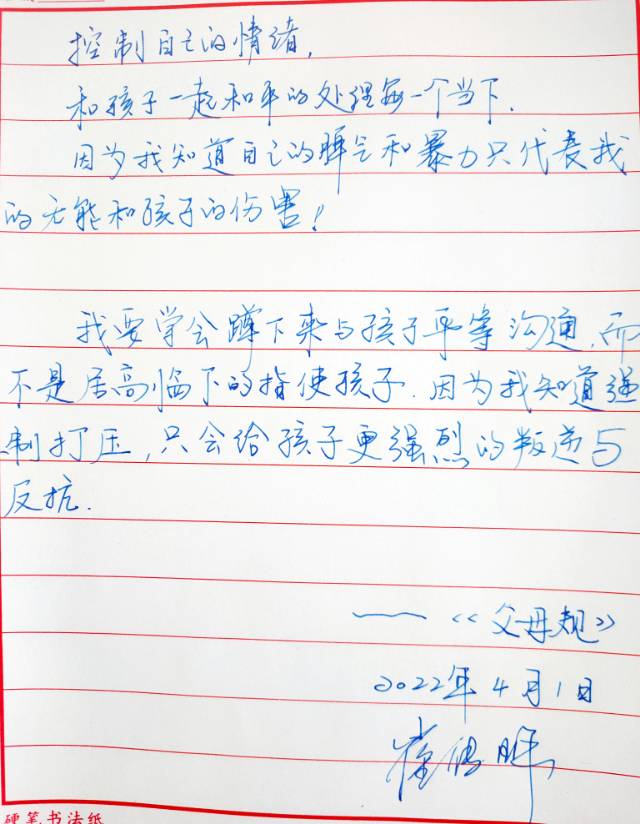 控制自己的情绪,
和孩子一起和平的处理每一个当下.
因为我知道自己的脾气和暴力只代表我
的无能和孩子的伤害!
我要学会蹲下来与孩子平等沟通,而
不是居高临下的指使孩子.因为我知道强
制打压,只会给孩子更强烈的叛逆与
反抗.
——《父母规》
2022年4月1日
硬笔书法纸